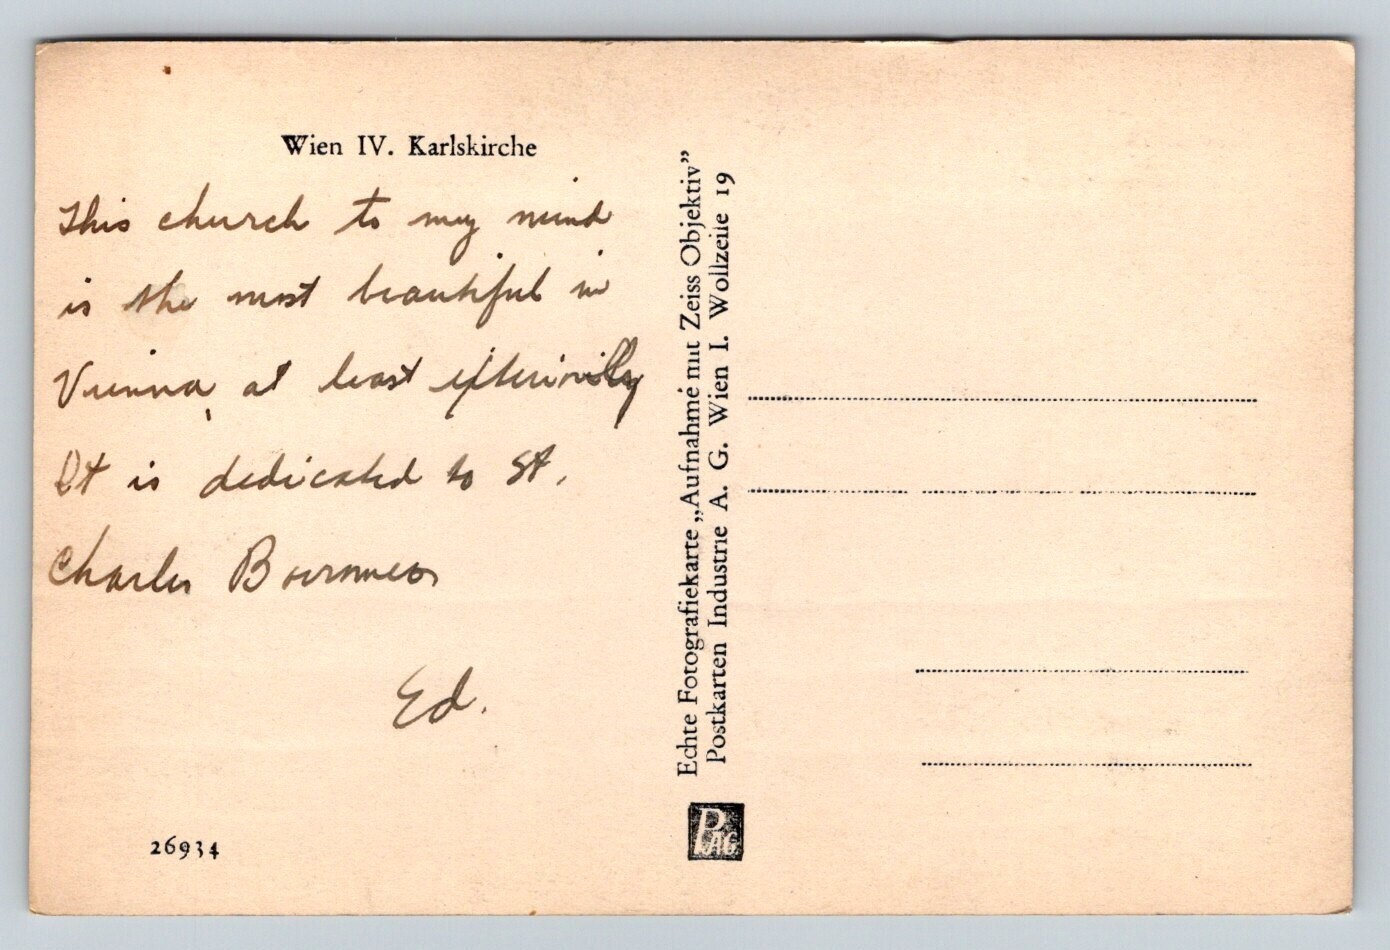 Wien IV. Karlskirche
This church to my mind
is the most beautiful in
Vienna, at least exteriorilly
It is dedicated to St.
Charles Borromeo
Ed.
26934
Echte Fotografiekarte „Aufnahme mit Zeiss Objektiv”
Postkarten Industrie A. G. Wien I. Wollzeile 19
PAG